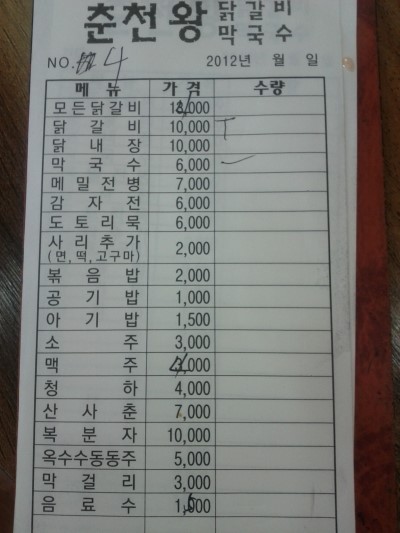 춘천왕 닭갈비
막국수
NO. 4 2012년 월 일
메뉴 가격 수량
모든닭갈비 000
닭갈비 10,000 T
닭내장 10,000
막국수 6,000
메밀전병 7,000
감자전 6,000
도토리묵 6,000
사리추가 2,000
(면,떡,고구마)
볶음밥 2,000
공기밥 1,000
아기밥 1,500
소주 3,000
맥주 4,000
청하 4,000
산사춘 7,000
복분자 10,000
옥수수동동주 5,000
막걸리 3,000
음료수 1,500